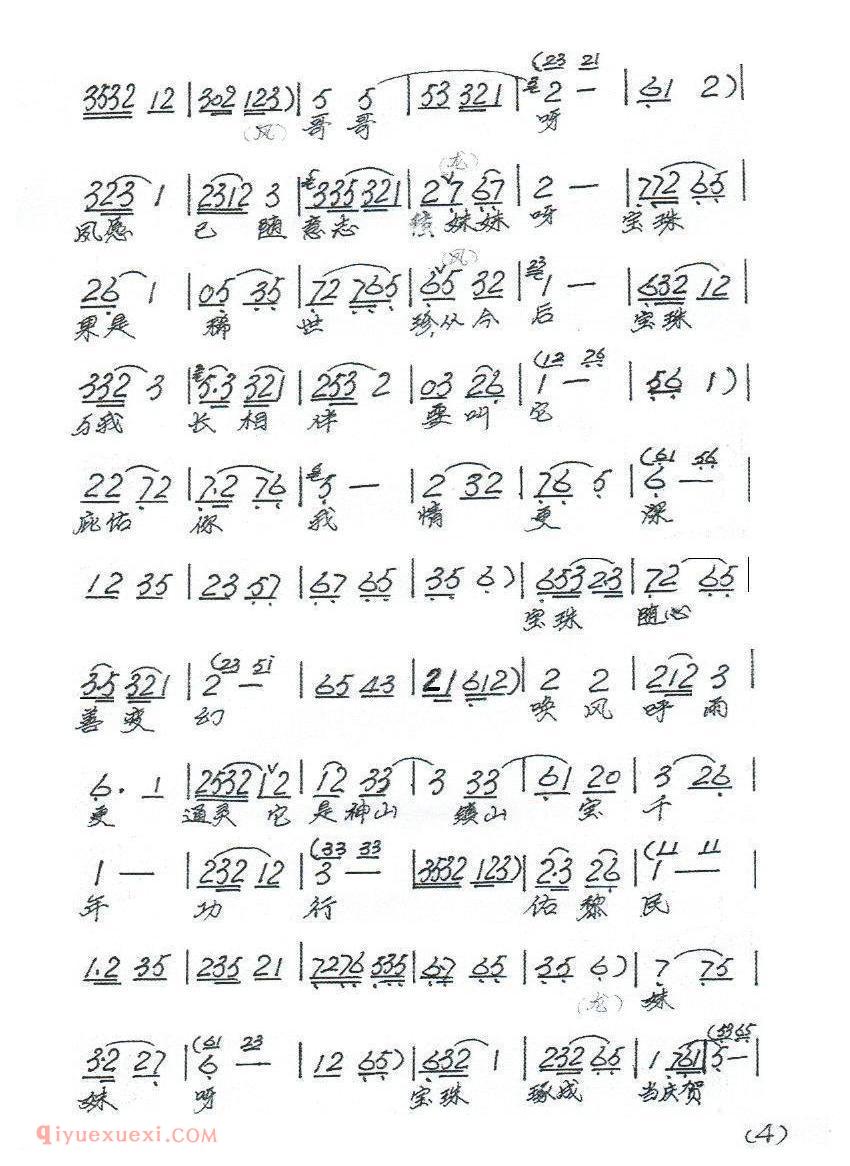 (23 21
3532 12 | 302 123) | 5 5 | 53 321 | 2 — | 61 2) |
(风) 哥 哥 呀
(龙)
323 1 | 2312 3 | 335321 | 27 67 | 2 — | 772 65 |
夙愿 已 随 意志 妹妹 呀 宝珠
(风) 23
26 1 | 05 35 | 72 765 | 65 32 | 1 — | 632 12 |
果是 稀 世 珍,从今 后 宝珠
(12 76
332 3 | 5.3 321 | 253 2 | 03 26 | 1 — | 56 1) |
与我 长 相 伴 要叫 它
(61 56
22 72 | 7.2 76 | 5 — | 2 32 | 76 5 | 6 — |
庇佑 你 我 情 更 深
12 35 | 23 57 | 67 65 | 35 6) | 653 2.3 | 72 65 |
宝珠 随心
(23 51
3.5 321 | 2 — | 65 43 | 21 612) | 2 2 | 212 3 |
善变 幻 唤 风 呼 雨
6. 1 | 2532 12 | 12 33 | 3 33 | 61 20 | 3 26 |
更 通灵 它 是神山 镇山 宝 千
(33 33 (11 11
1 — | 232 12 | 3 — | 3532 123) | 2.3 26 | 1 — |
年 功 行 佑 黎 民
1.2 35 | 235 21 | 7276 535 | 6.7 65 | 35 6) | 7 75 |
(龙) 妹
(61 23 (5365
3.2 27 | 6 — | 12 65) | 632 1 | 232 65 | 1 761 | 5 — |
妹 呀 宝珠 琢成 当庆贺
qiyuexuexi.COM
(4)